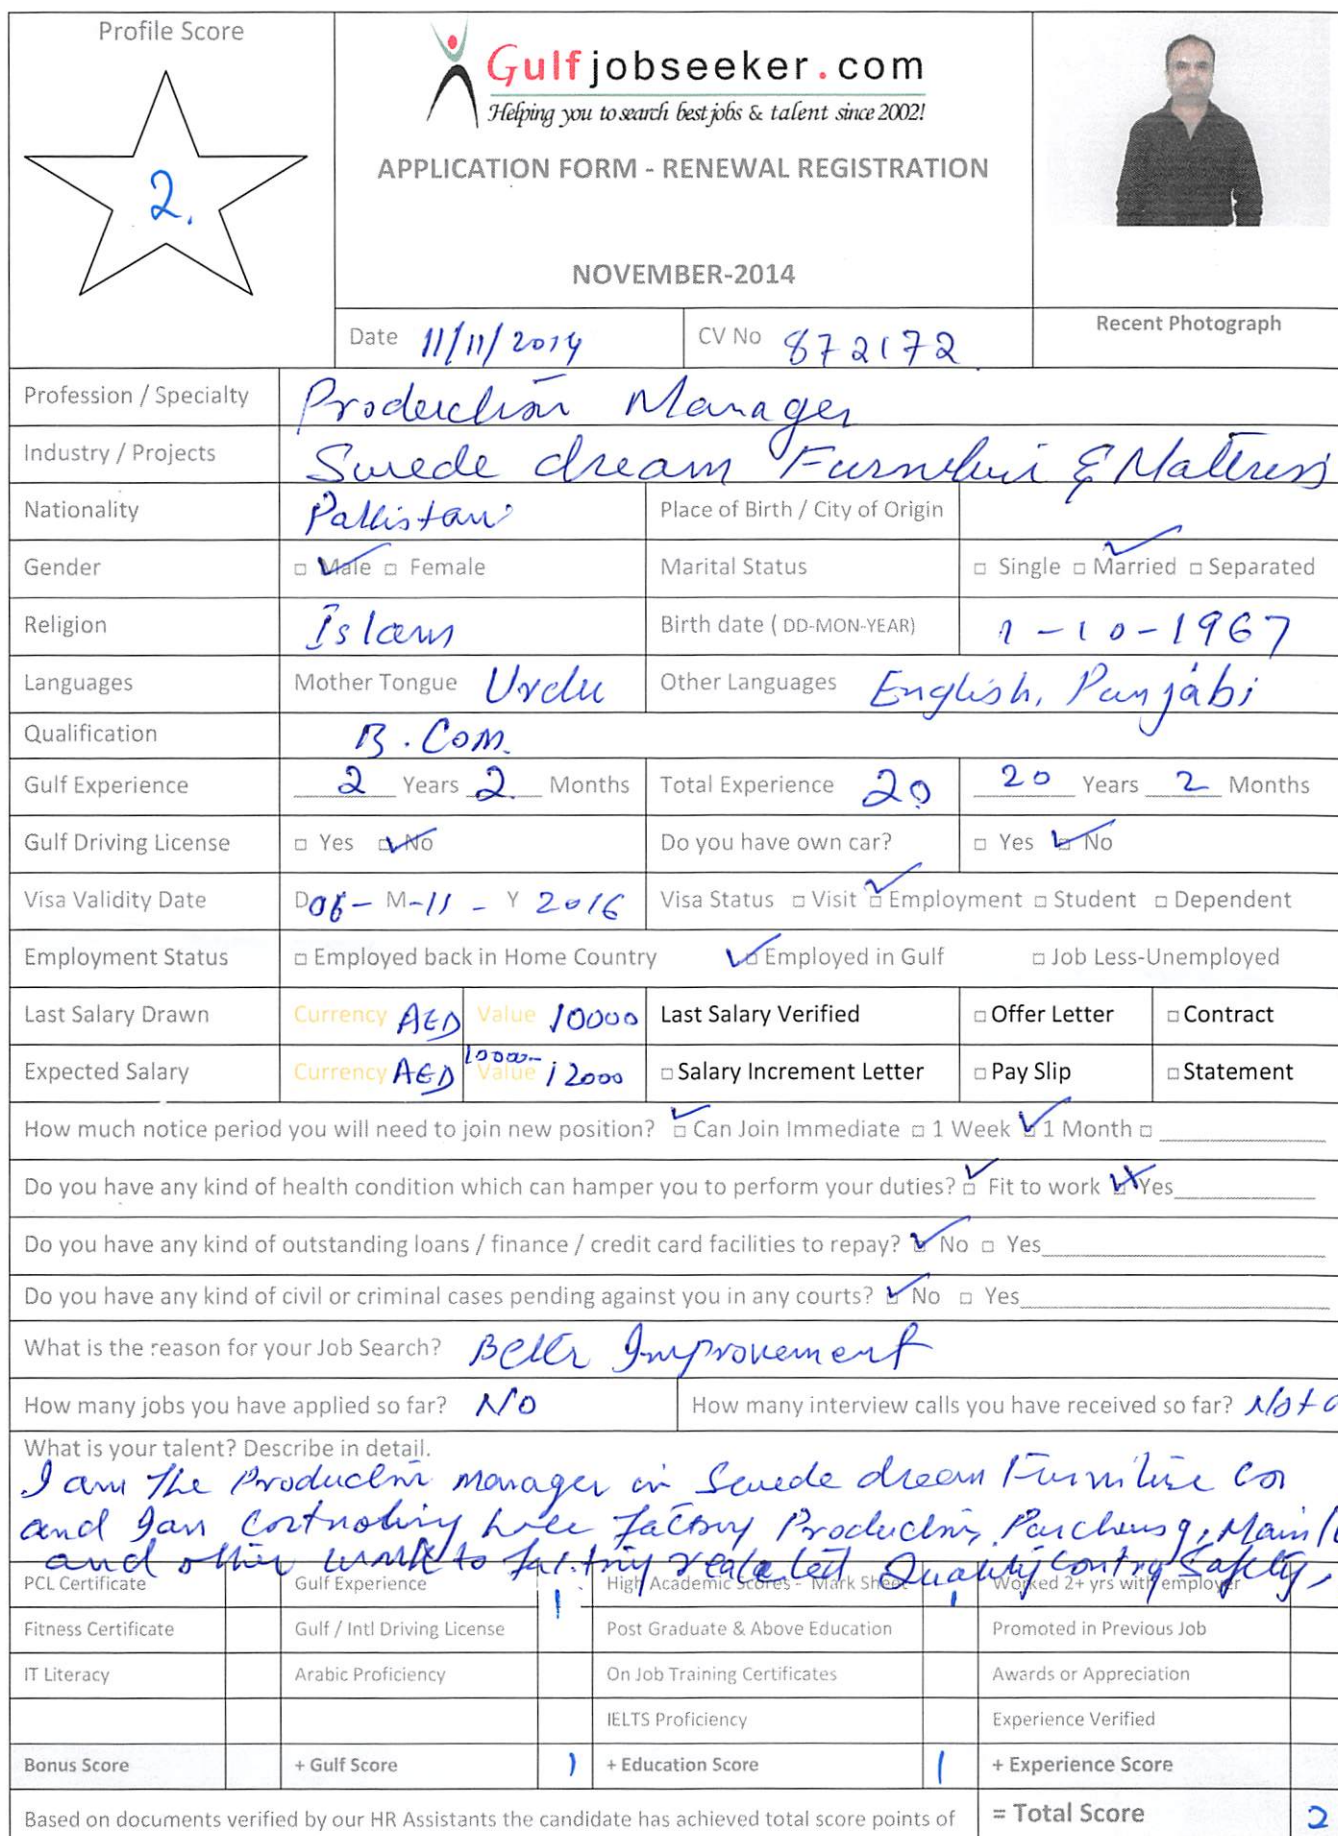 Profile Score
2.
Gulfjobseeker.com
Helping you to search best jobs & talent since 2002!
APPLICATION FORM - RENEWAL REGISTRATION
NOVEMBER-2014
Date 11/11/2014 CV No 872172
Recent Photograph
Profession / Specialty Production Manager
Industry / Projects Swede dream Furniture & Mattress
Nationality Pakistani Place of Birth / City of Origin
Gender □ Male □ Female Marital Status □ Single □ Married □ Separated
Religion Islam Birth date ( DD-MON-YEAR) 1-10-1967
Languages Mother Tongue Urdu Other Languages English, Punjabi
Qualification B.Com.
Gulf Experience 2 Years 2 Months Total Experience 20 20 Years 2 Months
Gulf Driving License □ Yes □ No Do you have own car? □ Yes □ No
Visa Validity Date D 06 - M-11 - Y 2016 Visa Status □ Visit □ Employment □ Student □ Dependent
Employment Status □ Employed back in Home Country □ Employed in Gulf □ Job Less-Unemployed
Last Salary Drawn Currency AED Value 10000 Last Salary Verified □ Offer Letter □ Contract
Expected Salary Currency AED Value 10000- 12000 □ Salary Increment Letter □ Pay Slip □ Statement
How much notice period you will need to join new position? □ Can Join Immediate □ 1 Week □ 1 Month □
Do you have any kind of health condition which can hamper you to perform your duties? □ Fit to work □ Yes
Do you have any kind of outstanding loans / finance / credit card facilities to repay? □ No □ Yes
Do you have any kind of civil or criminal cases pending against you in any courts? □ No □ Yes
What is the reason for your Job Search? Better Improvement
How many jobs you have applied so far? No How many interview calls you have received so far? Not
What is your talent? Describe in detail.
I am the Production manager in Swede dream Furniture
and factory Production, Purchasing,
and other work to Quality Safety,
PCL Certificate Gulf Experience 1 High Academic Scores - Mark Sheet 1 Worked 2+ yrs with employer
Fitness Certificate Gulf / Intl Driving License Post Graduate & Above Education Promoted in Previous Job
IT Literacy Arabic Proficiency On Job Training Certificates Awards or Appreciation
IELTS Proficiency Experience Verified
Bonus Score + Gulf Score 1 + Education Score 1 + Experience Score
Based on documents verified by our HR Assistants the candidate has achieved total score points of = Total Score 2